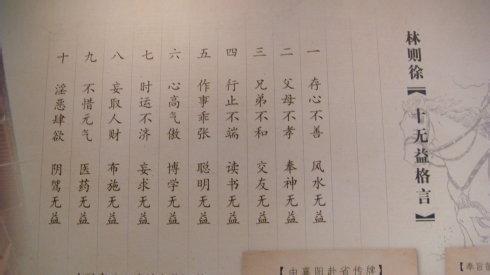 林则徐【十无益格言】
一 存心不善 风水无益
二 父母不孝 奉神无益
三 兄弟不和 交友无益
四 行止不端 读书无益
五 作事乖张 聪明无益
六 心高气傲 博学无益
七 时运不济 妄求无益
八 妄取人财 布施无益
九 不惜元气 医药无益
十 淫恶肆欲 阴骘无益
【由襄阳赴省传牌】
【奉旨